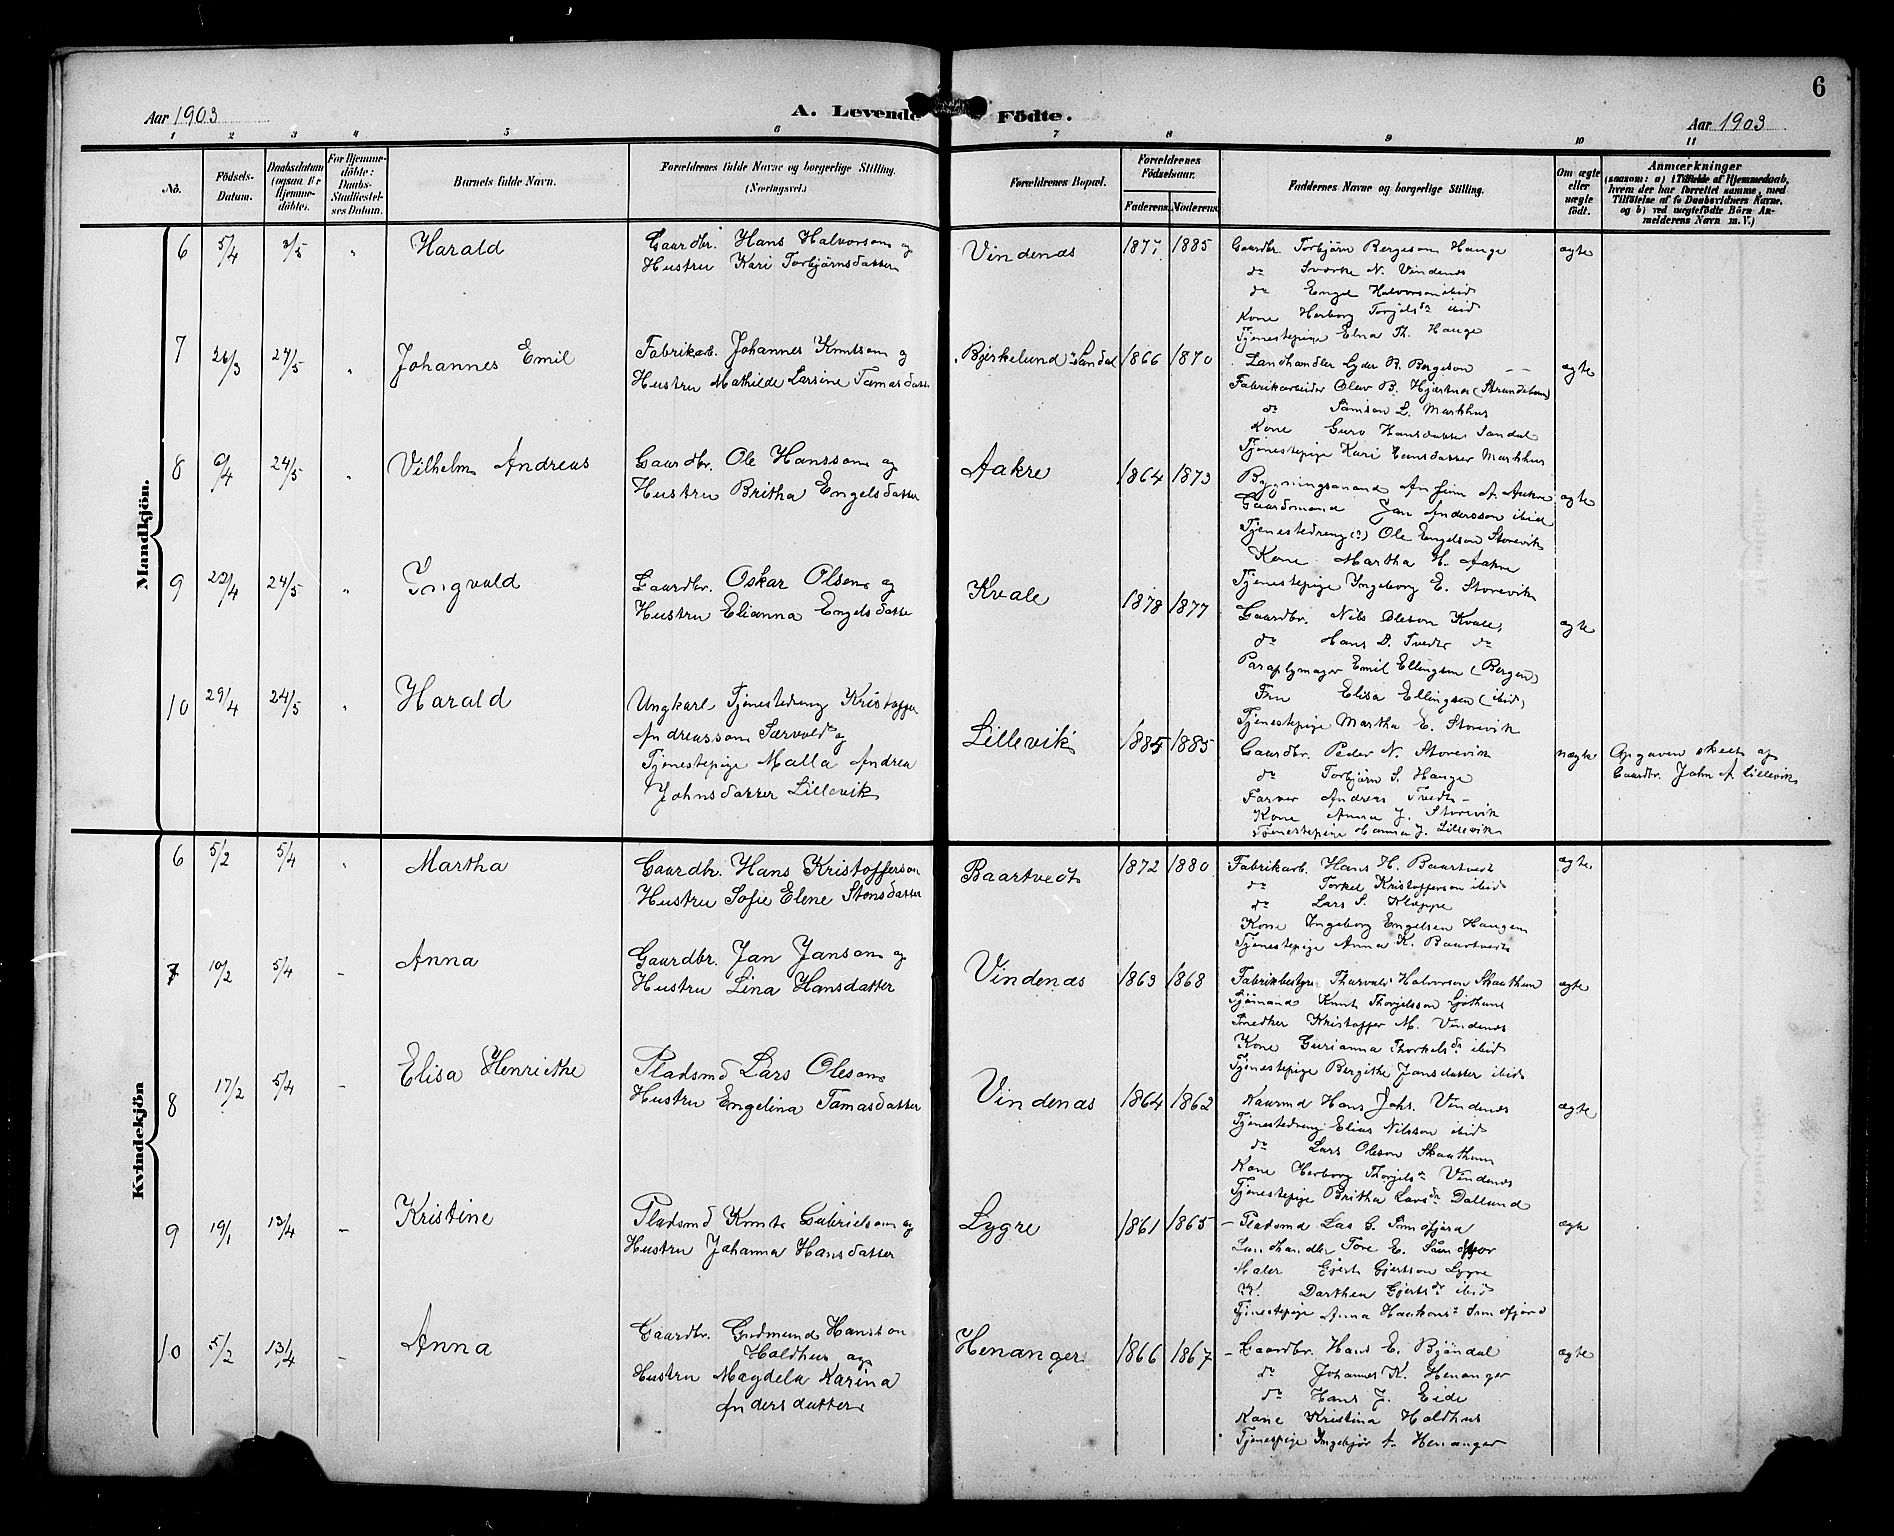 6
Aar 1903
A. Levende Födte.
Aar 1903
1 2 3 4 5 6 7 8 9 10 11
No.
Födsels-Datum.
Daabsdatum (ogsaa for Hjemmedöbte).
For Hjemmedöbte: Daabs-Stadfæstelses Datum.
Barnets fulde Navn.
Forældrenes fulde Navne og borgerlige Stilling.
(Næringsvei.)
Forældrenes Bopæl.
Forældrenes Födselsaar.
Faderens. Moderens.
Faddernes Navne og borgerlige Stilling.
Om ægte eller uægte födt.
Anmærkninger
(saasom: a) i Tilfælde af Hjemmedaab,
hvem der har forrettet samme, med
Tilföielse af to Daabsvidners Navne,
og b) ved uægtefödte Börn Anmelderens Navn m. V.)
Mandkjön.
6 5/4 3/5 " Harald
Gaardbr. Hans Halvorson og
Hustru Kari Torbjørnsdatter
Vindenæs 1877 1885
Gaardbr. Torbjørn Bergeson Hauge
do Sværke N. Vindenes
do Engel Halvorson ibid
Kone Herborg Torjelsdr ibid
Tjenestepige Elna Th. Hauge
ægte
7 26/3 24/5 " Johannes Emil
Fabrikarb. Johannes Knutson og
Hustru Mathilde Larsine Tamasdatter
"Bjerkelund" Sandal 1866 1870
Landhandler Lyder B. Bergeson
Fabrikarbeider Olav B. Hjærtnes (Strandebarm)
do Samson L. Markhus
Kone Guro Hansdatter Sandal
Tjenestepige Kari Hansdatter Markhus
ægte
8 6/4 24/5 " Vilhelm Andreas
Gaardbr. Ole Hansson og
Hustru Britha Engelsdatter
Aakre 1864 1873
Bygningsmand Anfinn A. Aakre
Gaardmand Jan Andersson ibid
Tjenestedreng Ole Engelson Storevik
Kone Martha H. Aakre
Tjenestepige Ingeborg E. Storevik
ægte
9 22/4 24/5 " Ingvald
Gaardbr. Oskar Olsen og
Hustru Elianna Engelsdatter
Kvale 1878 1877
Gaardbr. Nils Oleson Kvale,
do Hans D. Tvedt do
Paraplymager Emil Ellingsen (Bergen)
Fru Elisa Ellingsen (ibid)
Tjenestepige Martha E. Storevik
ægte
10 29/4 24/5 " Harald
Ungkarl Tjenestedreng Kristoffer
Andreasson Særvold og
Tjenestepige Malla Andrea
Johnsdatter Lillevik
Lillevik 1885 1885
Gaardbr. Peder N. Storevik
do Torbjørn S. Hauge
Farver Andreas Tvedt
Kone Anna J. Storevik
Tjenestepige Hanna J. Lillevik
uægte
Opgaven skeet af
Gaardbr. John A. Lillevik
Kvindekjön
6 5/2 5/4 " Martha
Gaardbr. Hans Kristofferson
Hustru Sofie Elene Stonsdatter
Baartvedt 1872 1880
Fabrikarb. Hans H. Baartvedt
do Torkel Kristofferson ibid
do Lars S. Klæppe
Kone Ingeborg Engelsen Haugen
Tjenestepige Anna K. Baartvedt
ægte
7 10/2 5/4 - Anna
Gaardbr. Jan Janson og
Hustru Lina Hansdatter
Vindenæs 1863 1868
Fabrikbestyrer Thorvald Halvorson Skaathun
Sjømand Knut Thorgelsson
Snedker Kristoffer M. Vindenes
Kone Gurianna Thorkelsdr ibid
Tjenestepige Bergithe Jansdatter ibid
ægte
8 17/2 5/4 - Elisa Henriette
Pladsmd Lars Oleson
Hustru Engelina Tamasdatter
Vindenæs 1864 1862
Kaarmd Hans Johs. Vindenes
Tjenestedreng Elias Nilsson ibid
do Lars Oleson Skaathun
Kone Herborg Thorgelsdr Vindenes
Tjenestepige Britha Larsdr Dalland
ægte
9 19/1 13/4 - Kristine
Pladsmd Knut Gabrielson og
Hustru Johanna Hansdatter
Lygre 1861 1865
- Pladsmd Lar G. Sundfjord
Landhandler Tore E. Sundfjor
Maler Gjert Gjertson Lygre
K. Darthea Gjertsdr ibid
Tjenestepige Anna Haakons Sundfjord
ægte
10 5/2 13/4 - Anna
Gaardbr. Gudmund Hansson
Holdhus og
Hustru Magdela Karina
Andersdatter
Henanger 1866 1867
- Gaardbr. Hans E. Bjøndal
do Johannes K. Henanger
do Hans J. Eide
Kone Kristina Holdhus
Tjenespige Ingebjør A. Henanger
ægte